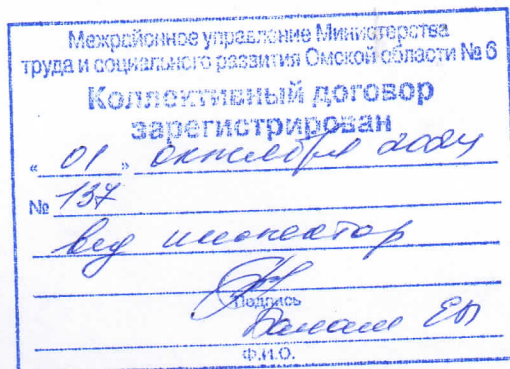 Межрайонное управление Министерства
труда и социального развития Омской области № 6
Коллективный договор
зарегистрирован
« 01 » октября 2024
№ 137
вед инспектор
Подпись
Ф.И.О.